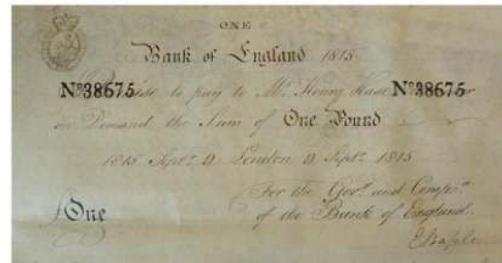 ONE
Bank of England 1815
Nº38675 to pay to Mr. Henry Hase Nº38675 or
on Demand the Sum of One Pound
1815 Sept. 9 London 9 Sept. 1815
For the Govr. and Compa.
One of the Bank of England.